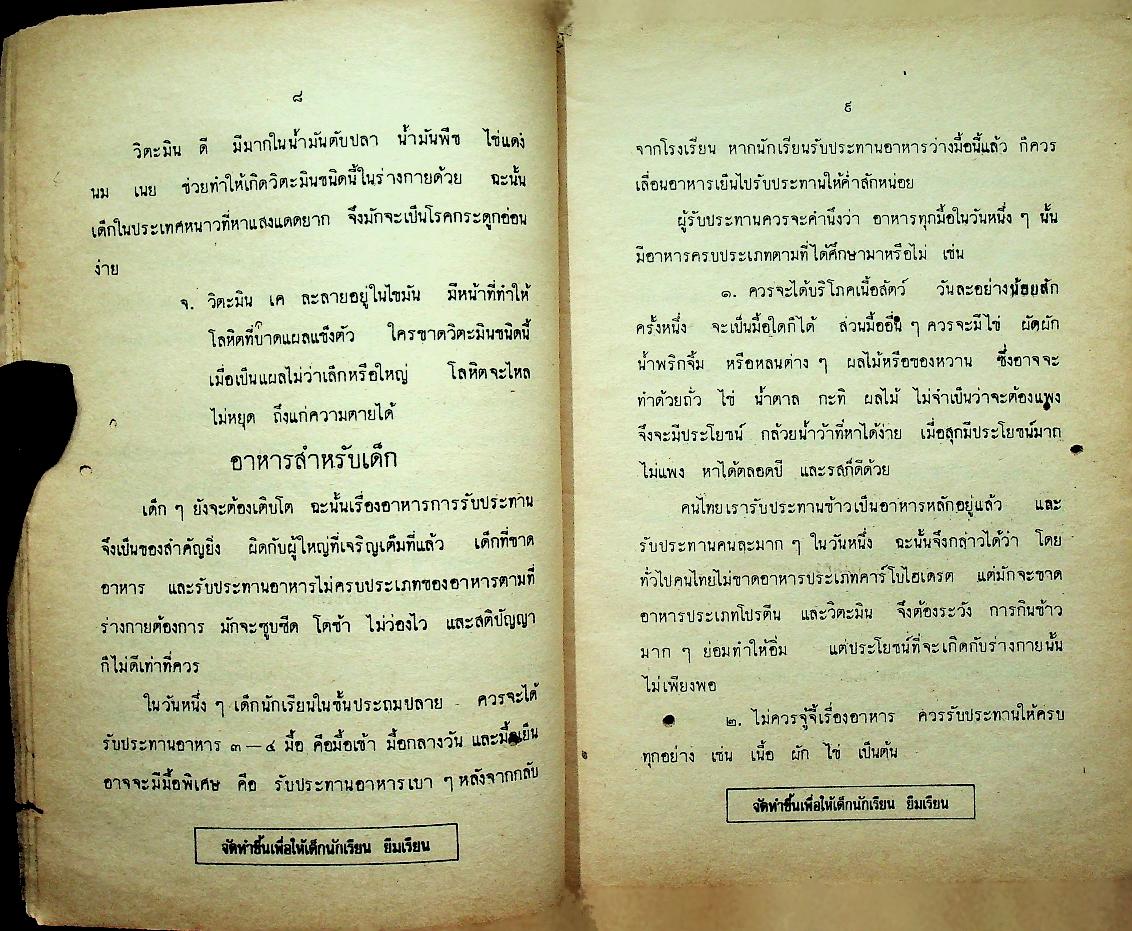 ๘
วิตะมิน ดี มีมากในน้ำมันตับปลา น้ำมันพืช ไข่แดง
นม เนย ช่วยทำให้เกิดวิตะมินชนิดนี้ในร่างกายด้วย ฉะนั้น
เด็กในประเทศหนาวที่หาแสงแดดยาก จึงมักจะเป็นโรคกระดูกอ่อน
ง่าย
จ. วิตะมิน เค ละลายอยู่ในไขมัน มีหน้าที่ทำให้
โลหิตที่บาดแผลแข็งตัว ใครขาดวิตะมินชนิดนี้
เมื่อเป็นแผลไม่ว่าเล็กหรือใหญ่ โลหิตจะไหล
ไม่หยุด ถึงแก่ความตายได้
อาหารสำหรับเด็ก
เด็ก ๆ ยังจะต้องเติบโต ฉะนั้นเรื่องอาหารการรับประทาน
จึงเป็นของสำคัญยิ่ง ผิดกับผู้ใหญ่ที่เจริญเต็มที่แล้ว เด็กที่ขาด
อาหาร และรับประทานอาหารไม่ครบประเภทของอาหารตามที่
ร่างกายต้องการ มักจะซูบซีด โตช้า ไม่ว่องไว และสติปัญญา
ก็ไม่ดีเท่าที่ควร
ในวันหนึ่ง ๆ เด็กนักเรียนในชั้นประถมปลาย ควรจะได้
รับประทานอาหาร ๓ — ๔ มื้อ คือมื้อเช้า มื้อกลางวัน และมื้อเย็น
อาจจะมีมื้อพิเศษ คือ รับประทานอาหารเบา ๆ หลังจากกลับ
จัดทำขึ้นเพื่อให้เด็กนักเรียน ยืมเรียน
๙
จากโรงเรียน หากนักเรียนรับประทานอาหารว่างมื้อนี้แล้ว ก็ควร
เลื่อนอาหารเย็นไปรับประทานให้ค่ำสักหน่อย
ผู้รับประทานควรจะคำนึงว่า อาหารทุกมื้อในวันหนึ่ง ๆ นั้น
มีอาหารครบประเภทตามที่ได้ศึกษามาหรือไม่ เช่น
๑. ควรจะได้บริโภคเนื้อสัตว์ วันละอย่างน้อยสัก
ครั้งหนึ่ง จะเป็นมื้อใดก็ได้ ส่วนมื้ออื่น ๆ ควรจะมีไข่ ผัดผัก
น้ำพริกจิ้ม หรือหลนต่าง ๆ ผลไม้หรือของหวาน ซึ่งอาจจะ
ทำด้วยถั่ว ไข่ น้ำตาล กะทิ ผลไม้ ไม่จำเป็นว่าจะต้องแพง
จึงจะมีประโยชน์ กล้วยน้ำว้าที่หาได้ง่าย เมื่อสุกมีประโยชน์มาก
ไม่แพง หาได้ตลอดปี และรสก็ดีด้วย
คนไทยเรารับประทานข้าวเป็นอาหารหลักอยู่แล้ว และ
รับประทานคนละมาก ๆ ในวันหนึ่ง ฉะนั้นจึงกล่าวได้ว่า โดย
ทั่วไปคนไทยไม่ขาดอาหารประเภทคาร์โบไฮเดรต แต่มักจะขาด
อาหารประเภทโปรตีน และวิตะมิน จึงต้องระวัง การกินข้าว
มาก ๆ ย่อมทำให้อิ่ม แต่ประโยชน์ที่จะเกิดกับร่างกายนั้น
ไม่เพียงพอ
๒. ไม่ควรจู้จี้เรื่องอาหาร ควรรับประทานให้ครบ
ทุกอย่าง เช่น เนื้อ ผัก ไข่ เป็นต้น
จัดทำขึ้นเพื่อให้เด็กนักเรียน ยืมเรียน